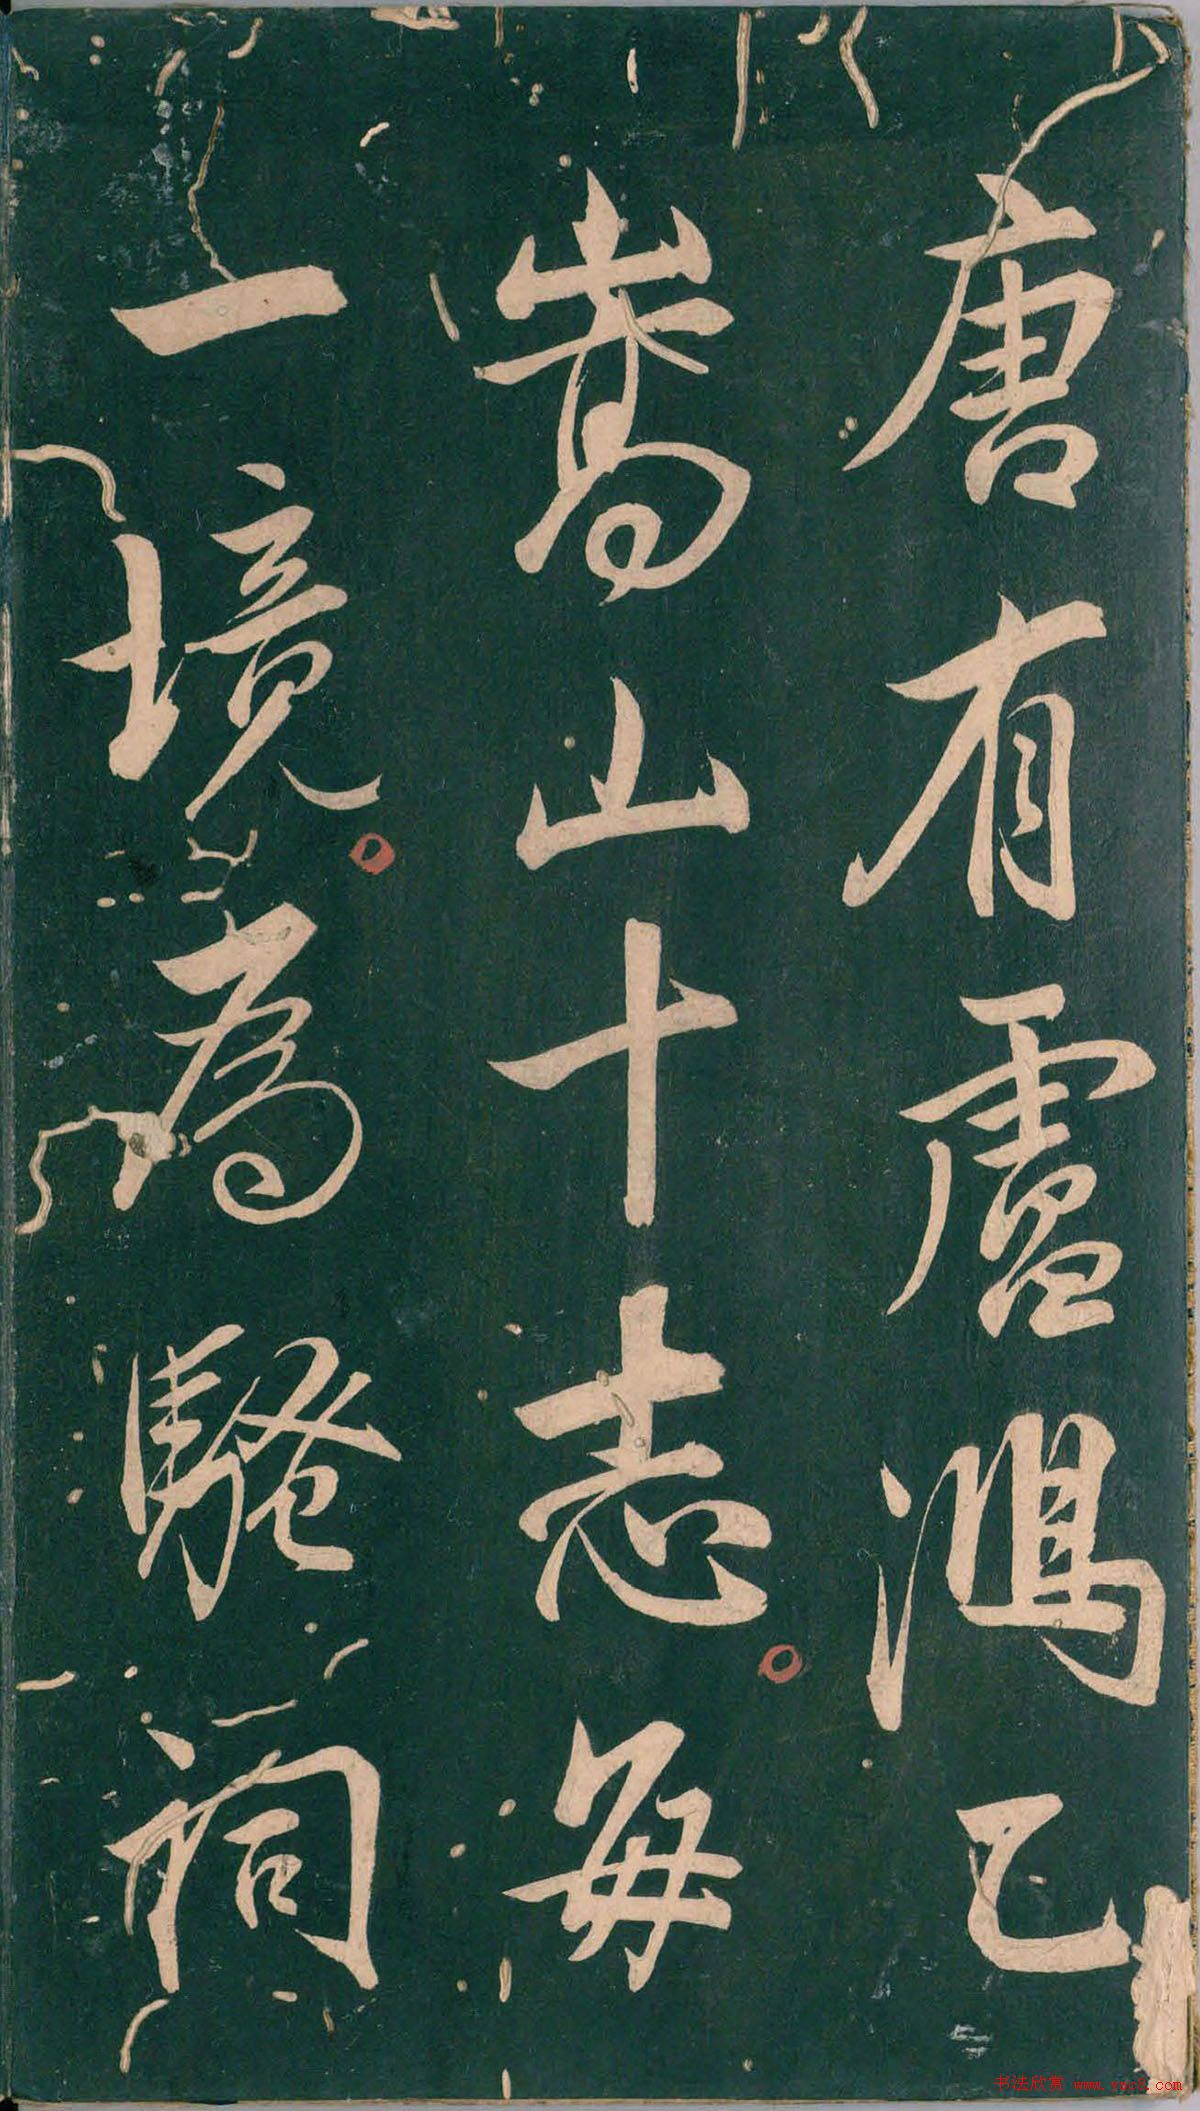 唐有盧鴻乙
嵩山十志每
一境為騷詞
书法欣赏 www.yac8.com